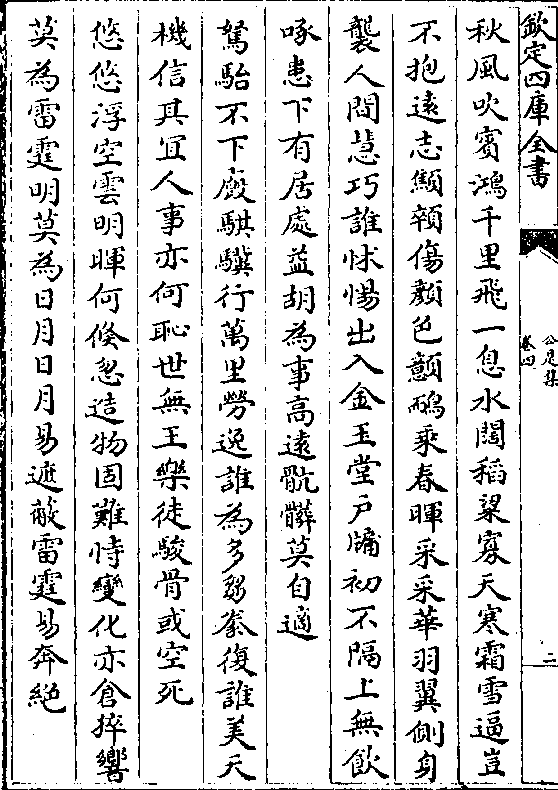 欽定四庫全書
公是集
卷四
二
秋風吹賓鴻千里飛一息水闊稻粱寡天寒霜雪逼豈
不抱遠志顦顇傷顏色鴯乘春暉采采華羽翼側身
襲人間慧巧誰怵惕出入金玉堂戶牖初不隔上無飲
啄患下有居處益胡為事高遠骯髒莫自適
駑駘不下廄騏驥行萬里勞逸誰為多芻豢復誰美天
機信其宜人事亦何恥世無王樂徒駿骨或空死
悠悠浮空雲明暉何倐忽造物固難恃變化亦倉猝響
莫為雷霆明莫為日月日月易遮蔽雷霆易奔絕